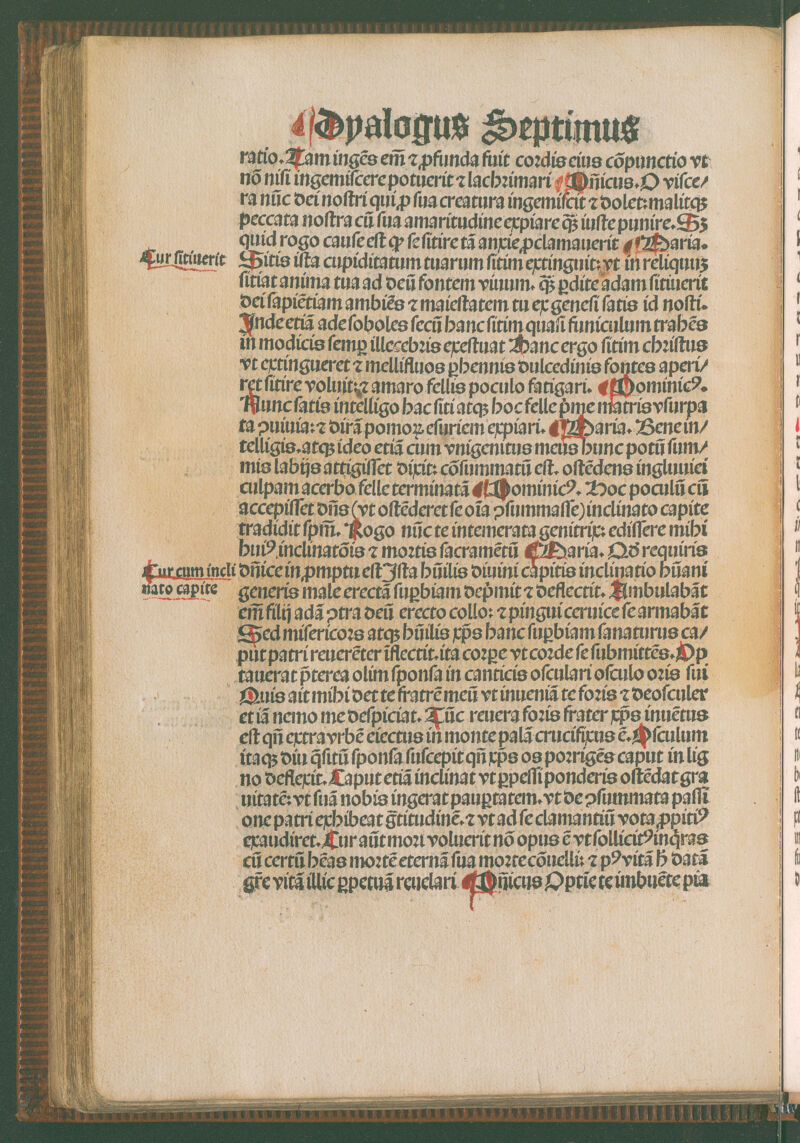 Dyalogus Septimus
ratio. Tam ingēs em̄ ⁊ ꝓfunda fuit cordis eius cōpunctio vt
nō nisi ingemiscere potuerit ⁊ lachrimari Dn̄icus. O visce/
ra nūc dei nostri qui ꝓ sua creatura ingemiscit ⁊ dolet: malitqꝫ
peccata nostra cū sua amaritudine expiare qꝫ̄ iuste punire. Sꝫ
quid rogo cause est ꝙ se sitire tā anxie ꝓclamauerit Maria.
Cur sitiuerit
Sitis ista cupiditatum tuarum sitim extinguit: vt in reliquuꝫ
sitiat anima tua ad deū fontem viuum. qꝫ̄ ꝑdite adam sitiuerit
dei sapiētiam ambiēs ⁊ maiestatem tu ex genesi satis id nosti.
Inde etiā ade soboles secū hanc sitim quasi funiculum trahēs
in modicis semꝑ illecebris exestuat Hanc ergo sitim christus
vt extingueret ⁊ mellifluos ꝑhennis dulcedinis fontes aperi/
ret sitire voluit: ⁊ amaro fellis poculo fatigari. Dominicꝰ.
Nunc satis intelligo hac siti atqꝫ hoc felle p̄me matris vsurpa
ta ↄuiuia: ⁊ dirā pomoꝝ esuriem expiari. Maria. Bene in/
telligis. atqꝫ ideo etiā cum vnigenitus meus hunc potū sum/
mis labijs attigisset dixit: cōsummatū est. ostēdens ingluuiei
culpam acerbo felle terminatā Dominicꝰ. Hoc poculū cū
accepisset dn̄s (vt ostēderet se oīa ↄsummasse) inclinato capite
tradidit spm̄. Rogo nūc te intemerata genitrix: edissere mihi
huiꝰ inclinatōis ⁊ mortis sacramētū Maria. Qd̄ requiris
Cur cum incli
nato capite
dn̄ice in ꝓmptu est Ista hūilis diuini capitis inclinatio hūani
generis male erectā suꝑbiam dep̄mit ⁊ deflectit. Ambulabāt
em̄ filij adā ↄtra deū erecto collo: ⁊ pingui ceruice se armabāt
Sed misericors atqꝫ hūilis xp̄s hanc suꝑbiam sanaturus ca/
put patri reuerēter īflectit. ita corꝑe vt corde se submittēs. Op
tauerat p̄terea olim sponsa in canticis osculari osculo oris sui
Quis ait mihi det te fratrē meū vt inueniā te foris ⁊ deosculer
et iā nemo me despiciat. Tūc reuera foris frater xp̄s inuētus
est qn̄ extra vrbē eiectus in monte palā crucifixus ē. Osculum
itaqꝫ diu q̄situ sponsa suscepit qn̄ xp̄s os porrigēs caput in lig
no deflexit. Caput etiā inclinat vt ꝑpessi ponderis ostēdat gra
uitatē: vt suā nobis ingerat pauꝑtatem. vt de ↄsummata passi
one patri exhibeat g̃titudinē. ⁊ vt ad se clamantiū vota ꝓpitiꝰ
exaudiret. Cur aūt mori voluerit nō opus ē vt sollicitꝰ inq̄ras
cū certū hēas mortē eternā sua morte cōuelli: ⁊ pꝰ vitā h̄ datā
gr̄e vitā illic ꝑpetuā reuelari Dn̄icus Optīe te imbuēte pia